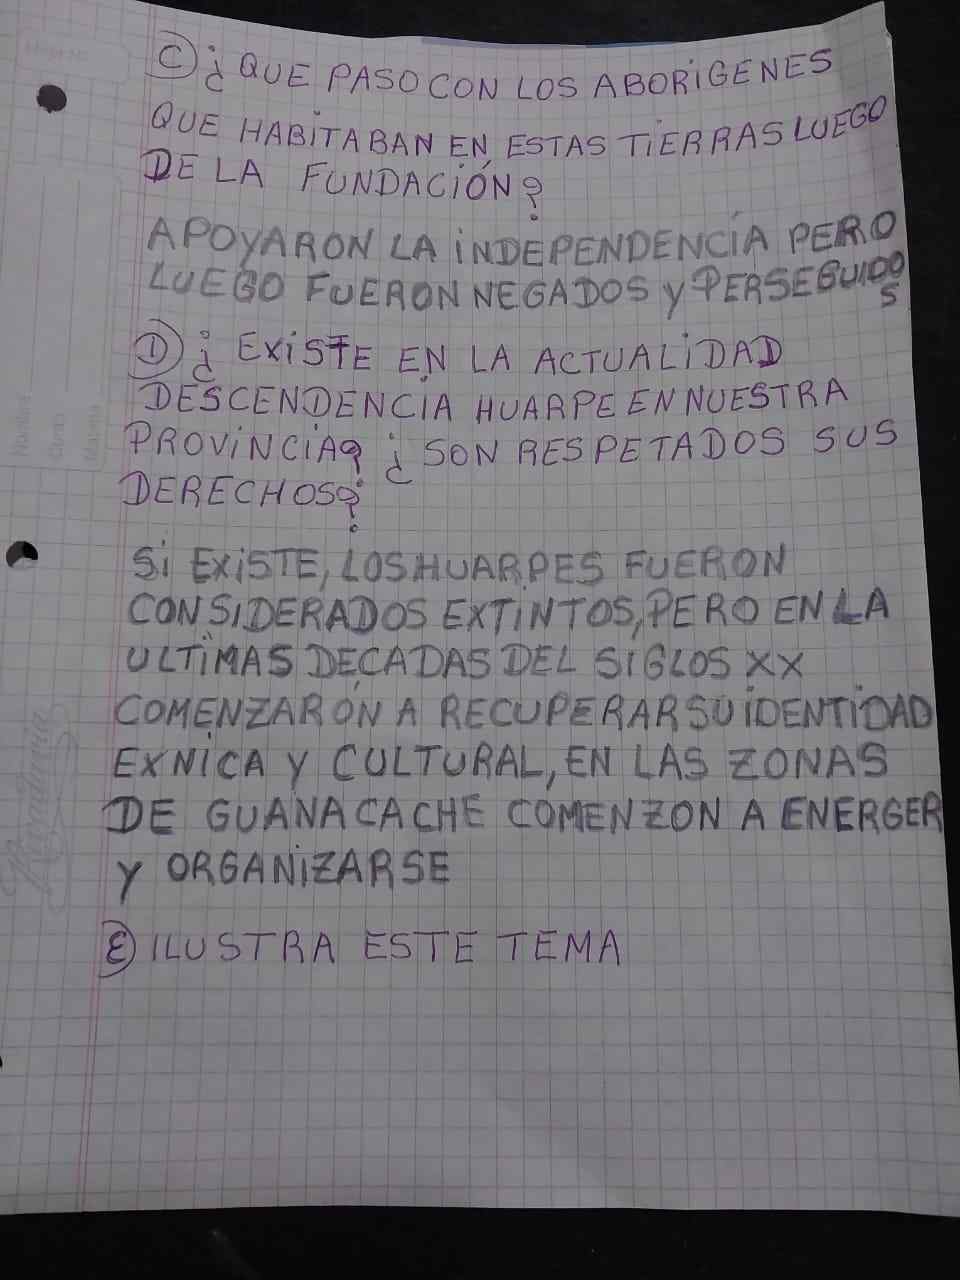 C) ¿ QUE PASO CON LOS ABORIGENES
QUE HABITABAN EN ESTAS TIERRAS LUEGO
DE LA FUNDACIÓN?
APOYARON LA INDEPENDENCIA PERO
LUEGO FUERON NEGADOS Y PERSEGUIDOS
D) ¿ EXISTE EN LA ACTUALIDAD
DESCENDENCIA HUARPE EN NUESTRA
PROVINCIA? ¿ SON RESPETADOS SUS
DERECHOS?
SI EXISTE, LOS HUARPES FUERON
CONSIDERADOS EXTINTOS, PERO EN LA
ULTIMAS DECADAS DEL SIGLOS XX
COMENZARON A RECUPERAR SU IDENTIDAD
EXNICA Y CULTURAL, EN LAS ZONAS
DE GUANACACHE COMENZON A ENERGER
Y ORGANIZARSE
E) ILUSTRA ESTE TEMA